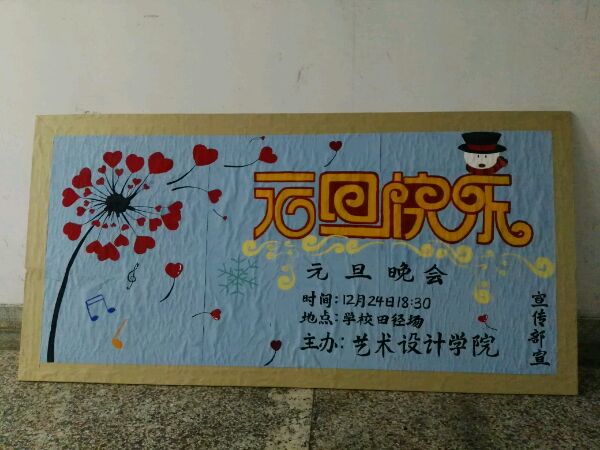 元旦快乐
元旦晚会
时间：12月24日18:30
地点：学校田径场
主办：艺术设计学院
宣传部宣